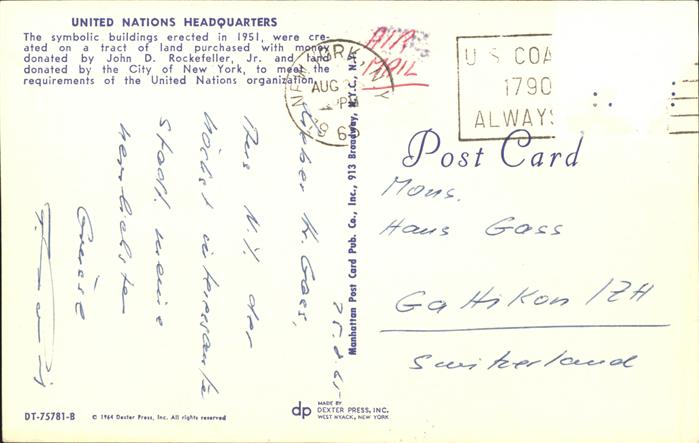 UNITED NATIONS HEADQUARTERS
The symbolic buildings erected in 1951, were cre-
ated on a tract of land purchased with money
donated by John D. Rockefeller, Jr. and land
donated by the City of New York, to meet the
requirements of the United Nations organization.
AIR
MAIL
NEW YORK, N.Y.
AUG
PM
U S COA
1790
ALWAYS
Post Card
Mons.
Hans Gass
Gattikon / ZH
Switzerland
25.8.65
Lieber H. Gass,
Aus N.Y. der
höchst interessante
Stadt meine
herzlichste
Grüsse
Manhattan Post Card Pub. Co., Inc., 913 Broadway, N.Y.C., N.Y.
DT-75781-B
© 1964 Dexter Press, Inc. All rights reserved
dp
MADE BY
DEXTER PRESS, INC.
WEST NYACK, NEW YORK